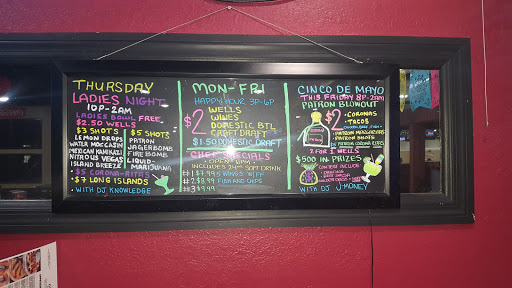 THURSDAY
LADIES NIGHT
10P-2AM
LADIES BOWL FREE
$2.50 WELLS
$3 SHOTS
LEMON DROPS
WATER MOCCASIN
MEXICAN KAMIKAZI
NITROUS VEGAS
ISLAND BREEZE
$5 SHOTS
PATRON
JAGERBOMB
FIREBOMB
LIQUID
MARIJUANA
$5 CORONA-RITAS
$7 LONG ISLANDS
WITH DJ KNOWLEDGE
MON-FRI
HAPPY HOUR 3P-6P
$2
WELLS
WINES
DOMESTIC BTL
CRAFT DRAFT
$1.50 DOMESTIC DRAFT
CHEF SPECIALS
INCLUDES 24oz SOFT DRINK
#1 $7.99 5 WINGS W/FF
#2 $8.99 FISH AND CHIPS
#3 $9.99
CINCO DE MAYO
THIS FRIDAY 8P-2AM
PATRON BLOWOUT
$2
CORONAS
TACOS
PATRON MARGARITAS
PATRON SHOTS
2 FOR 1 WELLS
$500 IN PRIZES
CONTEST INCLUDE
WITH DJ J-MONEY